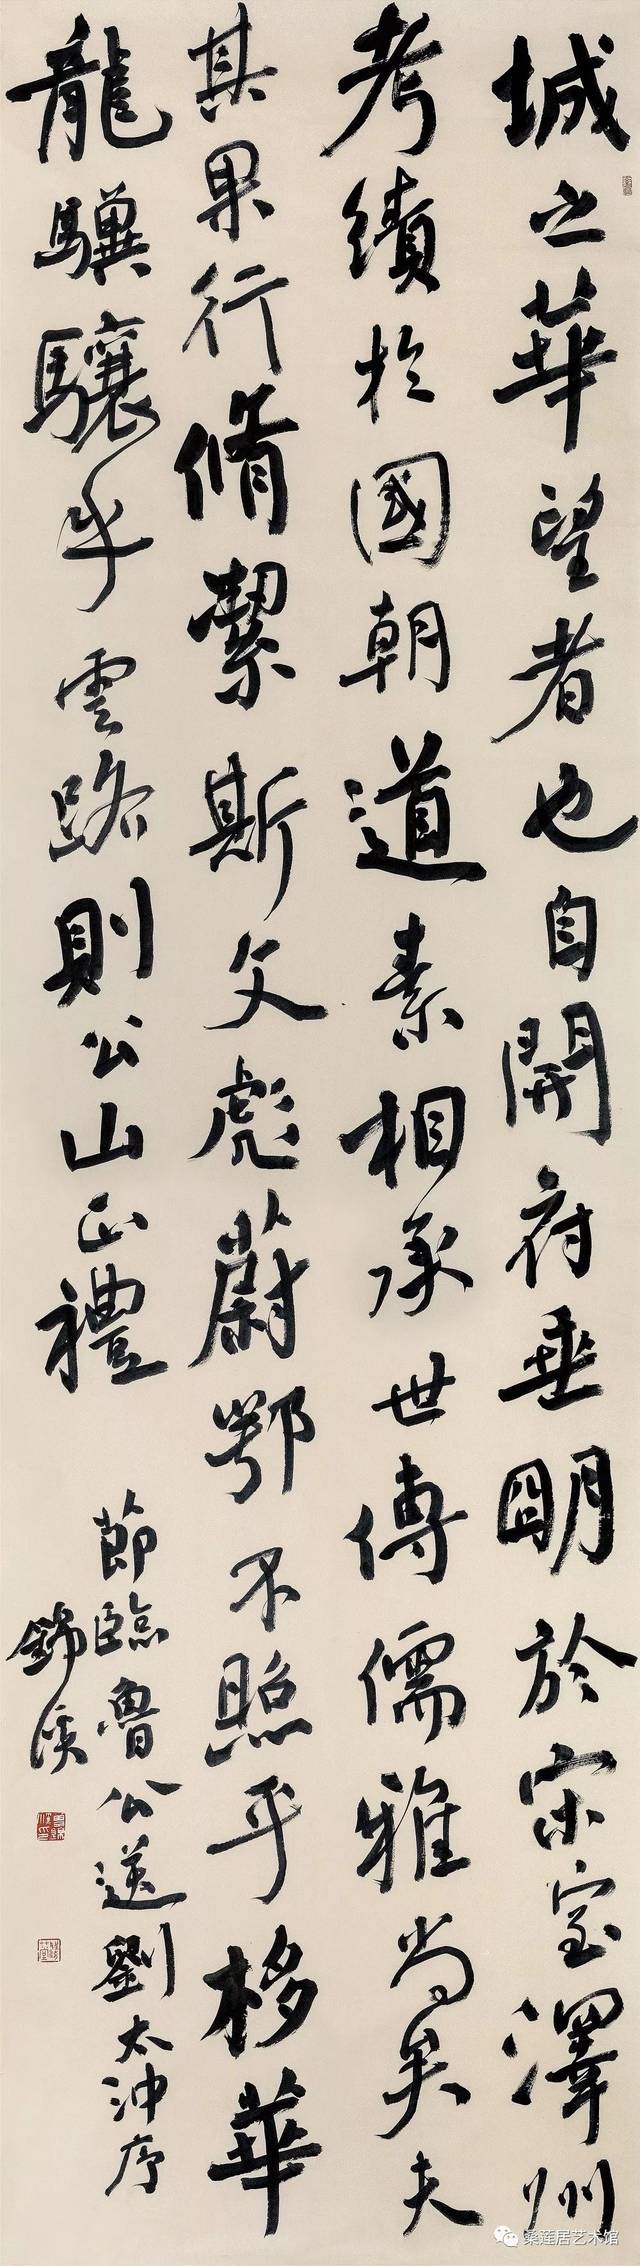 城之華望者也自開府垂明於宋室澤州
考績於國朝道素相承世傳儒雅尚矣夫
其果行脩絜斯文彪蔚鄂不照乎栘華
龍驤驤乎雲路則公山正禮
節臨魯公送劉太沖序
錦溪
桑莲居艺术馆